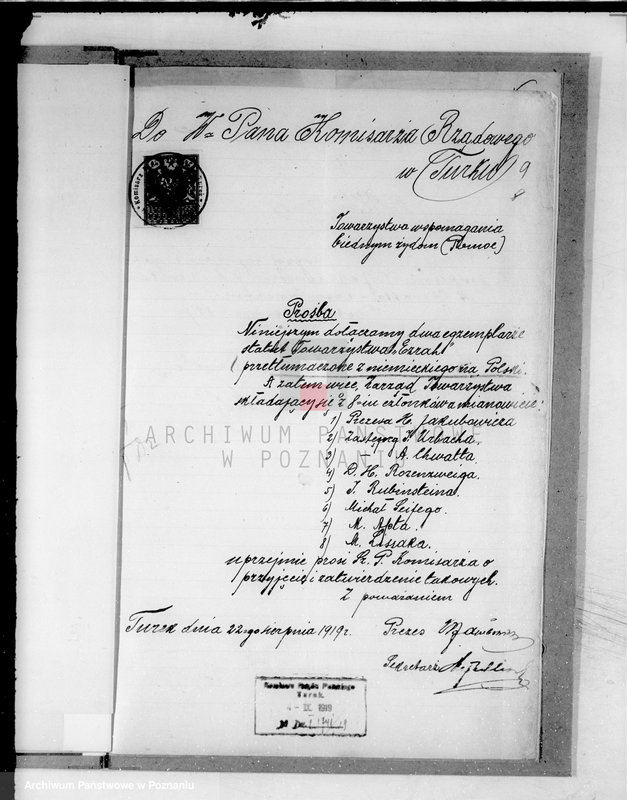 Do W. Pana Komisarza Rządowego
w Turku
9
8
Towarzystwa wspomagania
biednym żydom (Pomoc)
Prośba
Niniejszym dołączamy dwa egzemplarze
statut Towarzystwa „Ezrah"
przetłumaczone z niemieckiego na Polski.
A zatem więc, Zarząd Towarzystwa
składający się z 8-iu członków a mianowicie:
1) Prezesa H. Jakubowicza
2) Zastępcy J. Urbacha
3) A. Chwatta
4) D. H. Rozenzweiga.
5) J. Rubinsteina.
6) Michał Seifego.
7) M. Apta.
8) M. Lissaka.
uprzejmie prosi Sz. P. Komisarza o
przyjęcie i zatwierdzenie takowych.
Z poważaniem
Turek dnia 22-go sierpnia 1919 r.
Prezes
Sekretarz
Komisarz Rządu Polskiego
Turek.
4 - IX 1919
ARCHIWUM PAŃSTWOWE
W POZNANIU
Archiwum Państwowe w Poznaniu